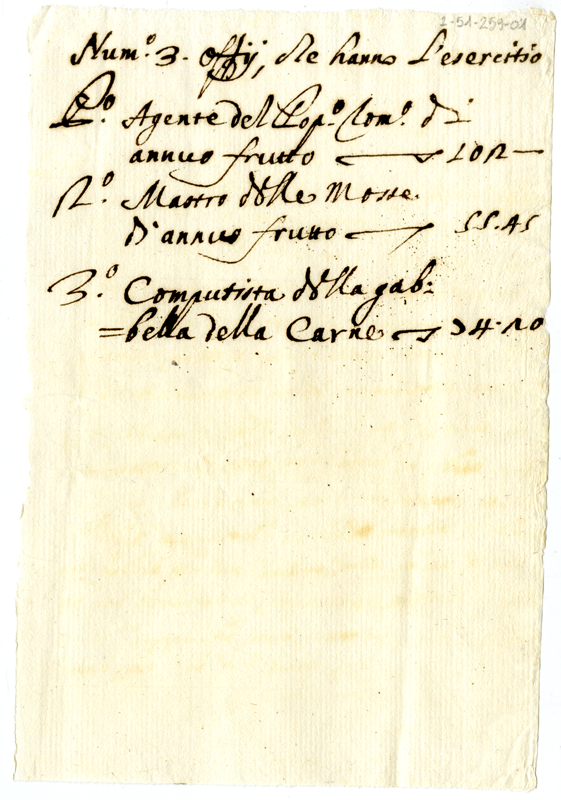 2-51-259-01
Num.º 3. offij, che hanno l'esercitio
P.º Agente del Pop.º Rom.º d'
annuo frutto 102
2.º Mastro delle Mosse
d'annuo frutto 55.45
3.º Computista della gab=
=bella della Carne 34.20